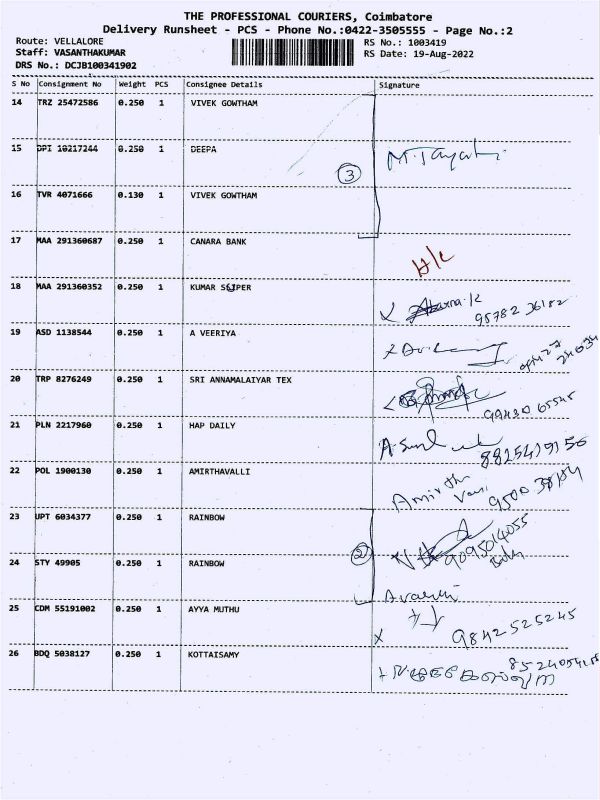 THE PROFESSIONAL COURIERS, Coimbatore
Delivery Runsheet - PCS - Phone No.:0422-3505555 - Page No.:2
Route: VELLALORE
RS No.: 1003419
Staff: VASANTHAKUMAR
RS Date: 19-Aug-2022
DRS No.: DCJB100341902
S No Consignment No Weight PCS Consignee Details Signature
14 TRZ 25472586 0.250 1 VIVEK GOWTHAM
15 DPI 10217244 0.250 1 DEEPA
3
16 TVR 4071666 0.130 1 VIVEK GOWTHAM
17 MAA 291360687 0.250 1 CANARA BANK
18 MAA 291360352 0.250 1 KUMAR SUPER
95782 36182
19 ASD 1138544 0.250 1 A VEERIYA
20 TRP 8276249 0.250 1 SRI ANNAMALAIYAR TEX
99430 65545
21 PLN 2217960 0.250 1 HAP DAILY
8825419156
22 POL 1900130 0.250 1 AMIRTHAVALLI
Amirtha
23 UPT 6034377 0.250 1 RAINBOW
9095014055
2
24 STY 49905 0.250 1 RAINBOW
25 CDM 55191002 0.250 1 AYYA MUTHU
9842525245
26 BDQ 5038127 0.250 1 KOTTAISAMY